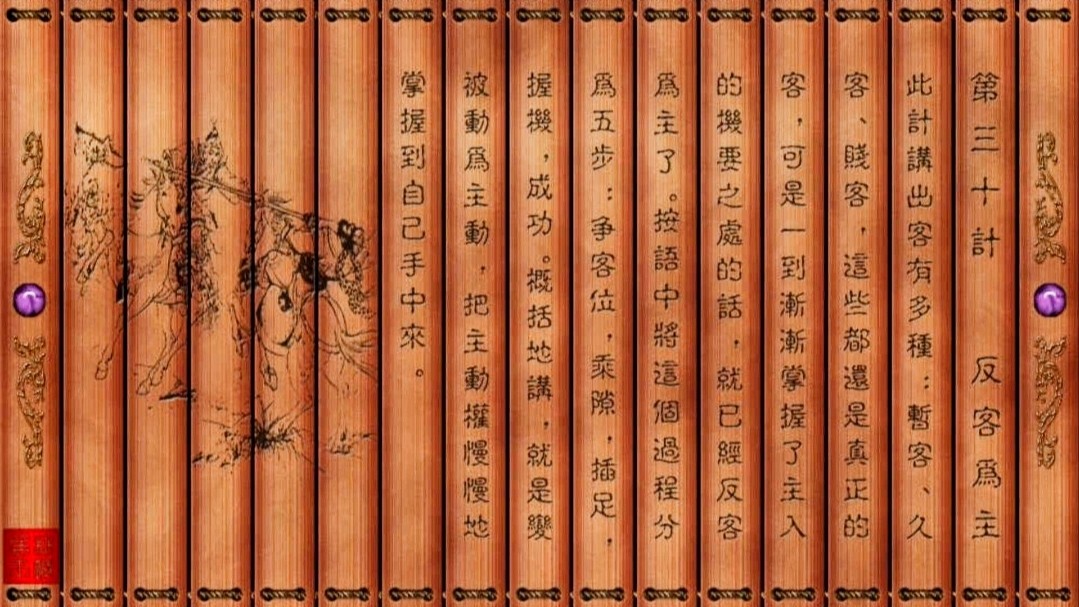 第三十計 反客爲主
此計講出客有多種：暫客、久
客、賤客，這些都還是真正的
客，可是一到漸漸掌握了主入
的機要之處的話，就已經反客
爲主了。按語中將這個過程分
爲五步：争客位，乘隙，插足，
握機，成功。概括地講，就是變
被動爲主動，把主動權慢慢地
掌握到自己手中來。